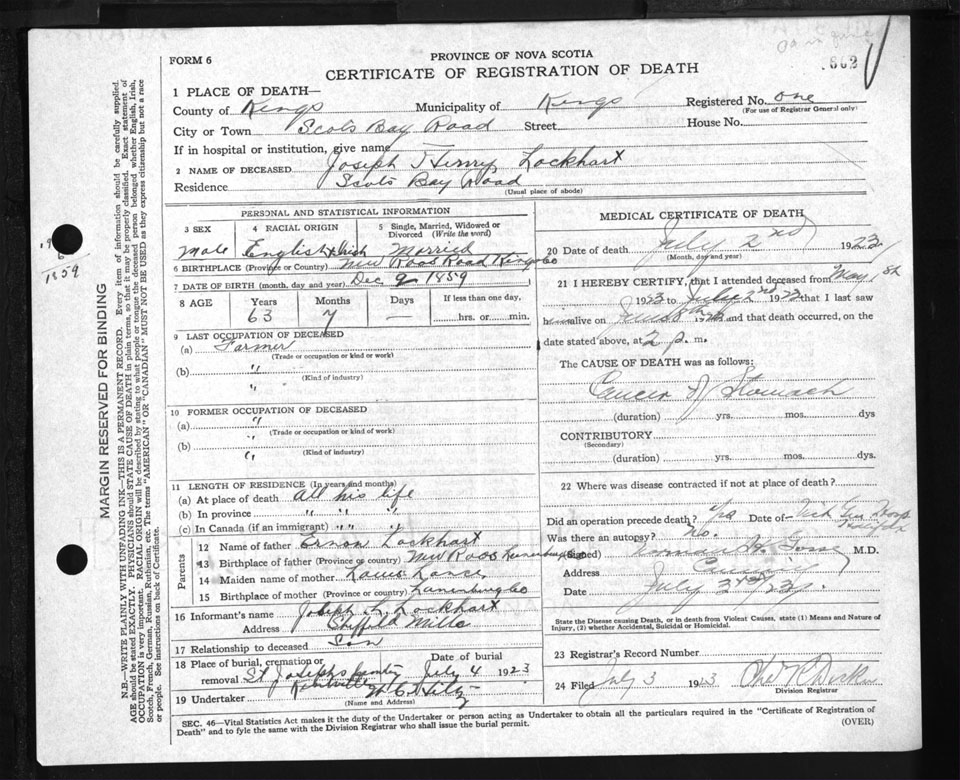 FORM 6
PROVINCE OF NOVA SCOTIA
CERTIFICATE OF REGISTRATION OF DEATH
1 PLACE OF DEATH—
County of Kings Municipality of Kings Registered No. one
(For use of Registrar General only)
City or Town Scots Bay Road Street House No.
If in hospital or institution, give name
2 NAME OF DECEASED Joseph Henry Lockhart
Residence Scots Bay Road
(Usual place of abode)
PERSONAL AND STATISTICAL INFORMATION
3 SEX
4 RACIAL ORIGIN
5 Single, Married, Widowed or Divorced (Write the word)
Male English & Irish Married
6 BIRTHPLACE (Province or Country) New Ross Road Kings Co
7 DATE OF BIRTH (month, day and year) Dec 9 1859
8 AGE Years Months Days If less than one day,
63 7 — hrs. or min.
9 LAST OCCUPATION OF DECEASED
(a) Farmer
(Trade or occupation or kind or work)
(b) "
(Kind of industry)
"
10 FORMER OCCUPATION OF DECEASED
(a) "
(Trade or occupation or kind of work)
(b) "
(Kind of industry)
"
11 LENGTH OF RESIDENCE (In years and months)
(a) At place of death All his life
(b) In province " " "
(c) In Canada (if an immigrant) " " "
Parents
12 Name of father Lockhart
13 Birthplace of father (Province or Country) New Ross Lunenburg Co
14 Maiden name of mother
15 Birthplace of mother (Province or Country) Lunenburg Co
16 Informant's name Joseph L Lockhart
Address Sheffield Mills
17 Relationship to deceased Son
18 Place of burial, cremation or removal St Josephs Date of burial July 4 1923
Kentville
19 Undertaker
(Name and Address)
MEDICAL CERTIFICATE OF DEATH
20 Date of death July 2nd 1923
(Month, day and year)
21 I HEREBY CERTIFY, that I attended deceased from May 1st
1923 to July 2nd 1923 that I last saw
h alive on and that death occurred, on
date stated above, at 2 p. m.
The CAUSE OF DEATH was as follows:
Cancer of Stomach
(duration) yrs. mos. dys
CONTRIBUTORY
(Secondary)
(duration) yrs. mos. dys.
22 Where was disease contracted if not at place of death?
Did an operation precede death? Date of
Was there an autopsy? No.
(Signed) M.D.
Address
Date July 3rd/23
State the Disease causing Death, or in death from Violent Causes, state (1) Means and Nature of
Injury, (2) whether Accidental, Suicidal or Homicidal.
23 Registrar's Record Number
24 Filed July 3 1923
Division Registrar
SEC. 46—Vital Statistics Act makes it the duty of the Undertaker or person acting as Undertaker to obtain all the particulars required in the "Certificate of Registration of
Death" and to fyle the same with the Division Registrar who shall issue the burial permit. (OVER)
MARGIN RESERVED FOR BINDING
N.B.—WRITE PLAINLY WITH UNFADING INK—THIS IS A PERMANENT RECORD. Every item of information should be carefully supplied.
AGE should be stated EXACTLY. PHYSICIANS should STATE CAUSE OF DEATH in plain terms, so that it may be properly classified. Exact statement of
OCCUPATION is very important. RACIAL ORIGIN will be described by stating to what people or tongue the deceased person belonged whether English, Irish,
Scotch, French, German, Russian, Ruthenian, etc. The terms "AMERICAN" or "CANADIAN" MUST NOT BE USED as they express citizenship but not a race
or people. See instructions on back of Certificate.
1859